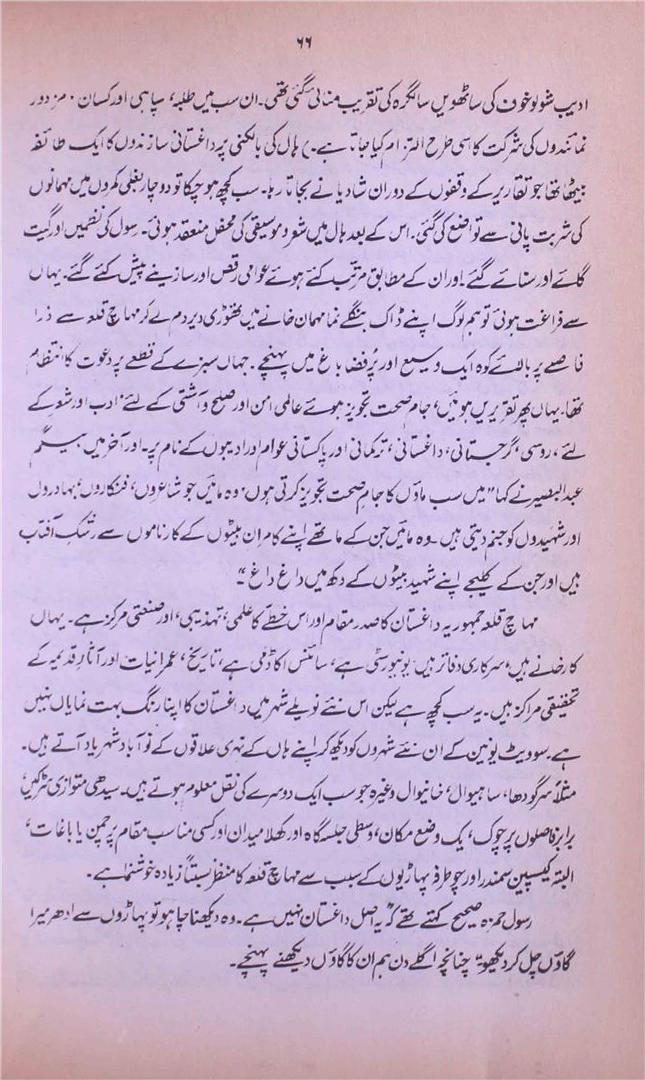 ۶۶
ادیب شولوخوف کی ساٹھویں سالگرہ کی تقریب منائی گئی تھی۔ ان سب میں طلبہ، سپاہی اور کسان، مزدور
نمائندوں کی شرکت کا اسی طرح التزام کیا جاتا ہے۔) ہال کی بالکنی پر داغستانی سازندوں کا ایک طائفہ
بیٹھا تھا جو تقاریر کے وقفوں کے دوران شادیانے بجاتا رہا۔ سب کچھ ہو چکا تو دو چار بغلی کمروں میں مہمانوں
کی شربت پانی سے تواضع کی گئی۔ اس کے بعد ہال میں شعر و موسیقی کی محفل منعقد ہوئی۔ رسول کی نظمیں اور گیت
گائے اور سنائے گئے۔ اور ان کے مطابق مرتب کئے ہوئے عوامی رقص اور سازینے پیش کئے گئے۔ یہاں
سے فراغت ہوئی تو ہم لوگ اپنے ڈاک بنگلے نما مہمان خانے میں تھوڑی دیر دم لے کر مہاچ قلعہ سے ذرا
فاصلے پر بالائے کوہ ایک وسیع اور پُرفضا باغ میں پہنچے۔ جہاں سبزے کے قطعے پر دعوت کا انتظام
تھا۔ یہاں پھر تقریریں ہوئیں، جام صحت تجویز ہوئے عالمی امن اور صلح و آشتی کے لئے، ادب اور شعر کے
لئے، روسی، گرجستانی، داغستانی، ترکمانی اور پاکستانی عوام اور ادیبوں کے نام پر۔ اور آخر میں بیگم
عبدالبصیر نے کہا "میں سب ماؤں کا جامِ صحت تجویز کرتی ہوں۔ وہ مائیں جو شاعروں، فنکاروں، بہادروں
اور شہیدوں کو جنم دیتی ہیں۔ وہ مائیں جن کے ماتھے اپنے کامران بیٹوں کے کارناموں سے رشکِ آفتاب
ہیں اور جن کے کلیجے اپنے شہید بیٹوں کے دکھ میں داغ داغ۔"
مہاچ قلعہ جمہوریہ داغستان کا صدر مقام اور اس خطے کا علمی، تہذیبی، اور صنعتی مرکز ہے۔ یہاں
کارخانے ہیں، سرکاری دفاتر ہیں یونیورسٹی ہے، سائنس اکاڈمی ہے، تاریخ، عمرانیات اور آثارِ قدیمہ کے
تحقیقی مراکز ہیں۔ یہ سب کچھ ہے لیکن اس نئے نویلے شہر میں داغستان کا اپنا رنگ بہت نمایاں نہیں
ہے۔ سوویٹ یونین کے ان نئے شہروں کو دیکھ کر اپنے ہاں کے نہری علاقوں کے نو آباد شہر یاد آتے ہیں۔
مثلاً سرگودھا، ساہیوال، خانیوال وغیرہ جو سب ایک دوسرے کی نقل معلوم ہوتے ہیں۔ سیدھی متوازی سڑکیں
برابر فاصلوں پر چوک، یک وضع مکان، وسطی جلسہ گاہ اور کھلا میدان اور کسی مناسب مقام پر چمن یا باغات،
البتہ کیسپین سمندر اور چوطرفہ پہاڑیوں کے سبب سے مہاچ قلعہ کا منظر نسبتاً زیادہ خوشنما ہے۔
رسول حمزہ صحیح کہتے تھے کہ "یہ اصل داغستان نہیں ہے۔ وہ دیکھنا چاہو تو پہاڑوں سے ادھر میرا
گاؤں چل کر دیکھو" چنانچہ اگلے دن ہم ان کا گاؤں دیکھنے پہنچے۔